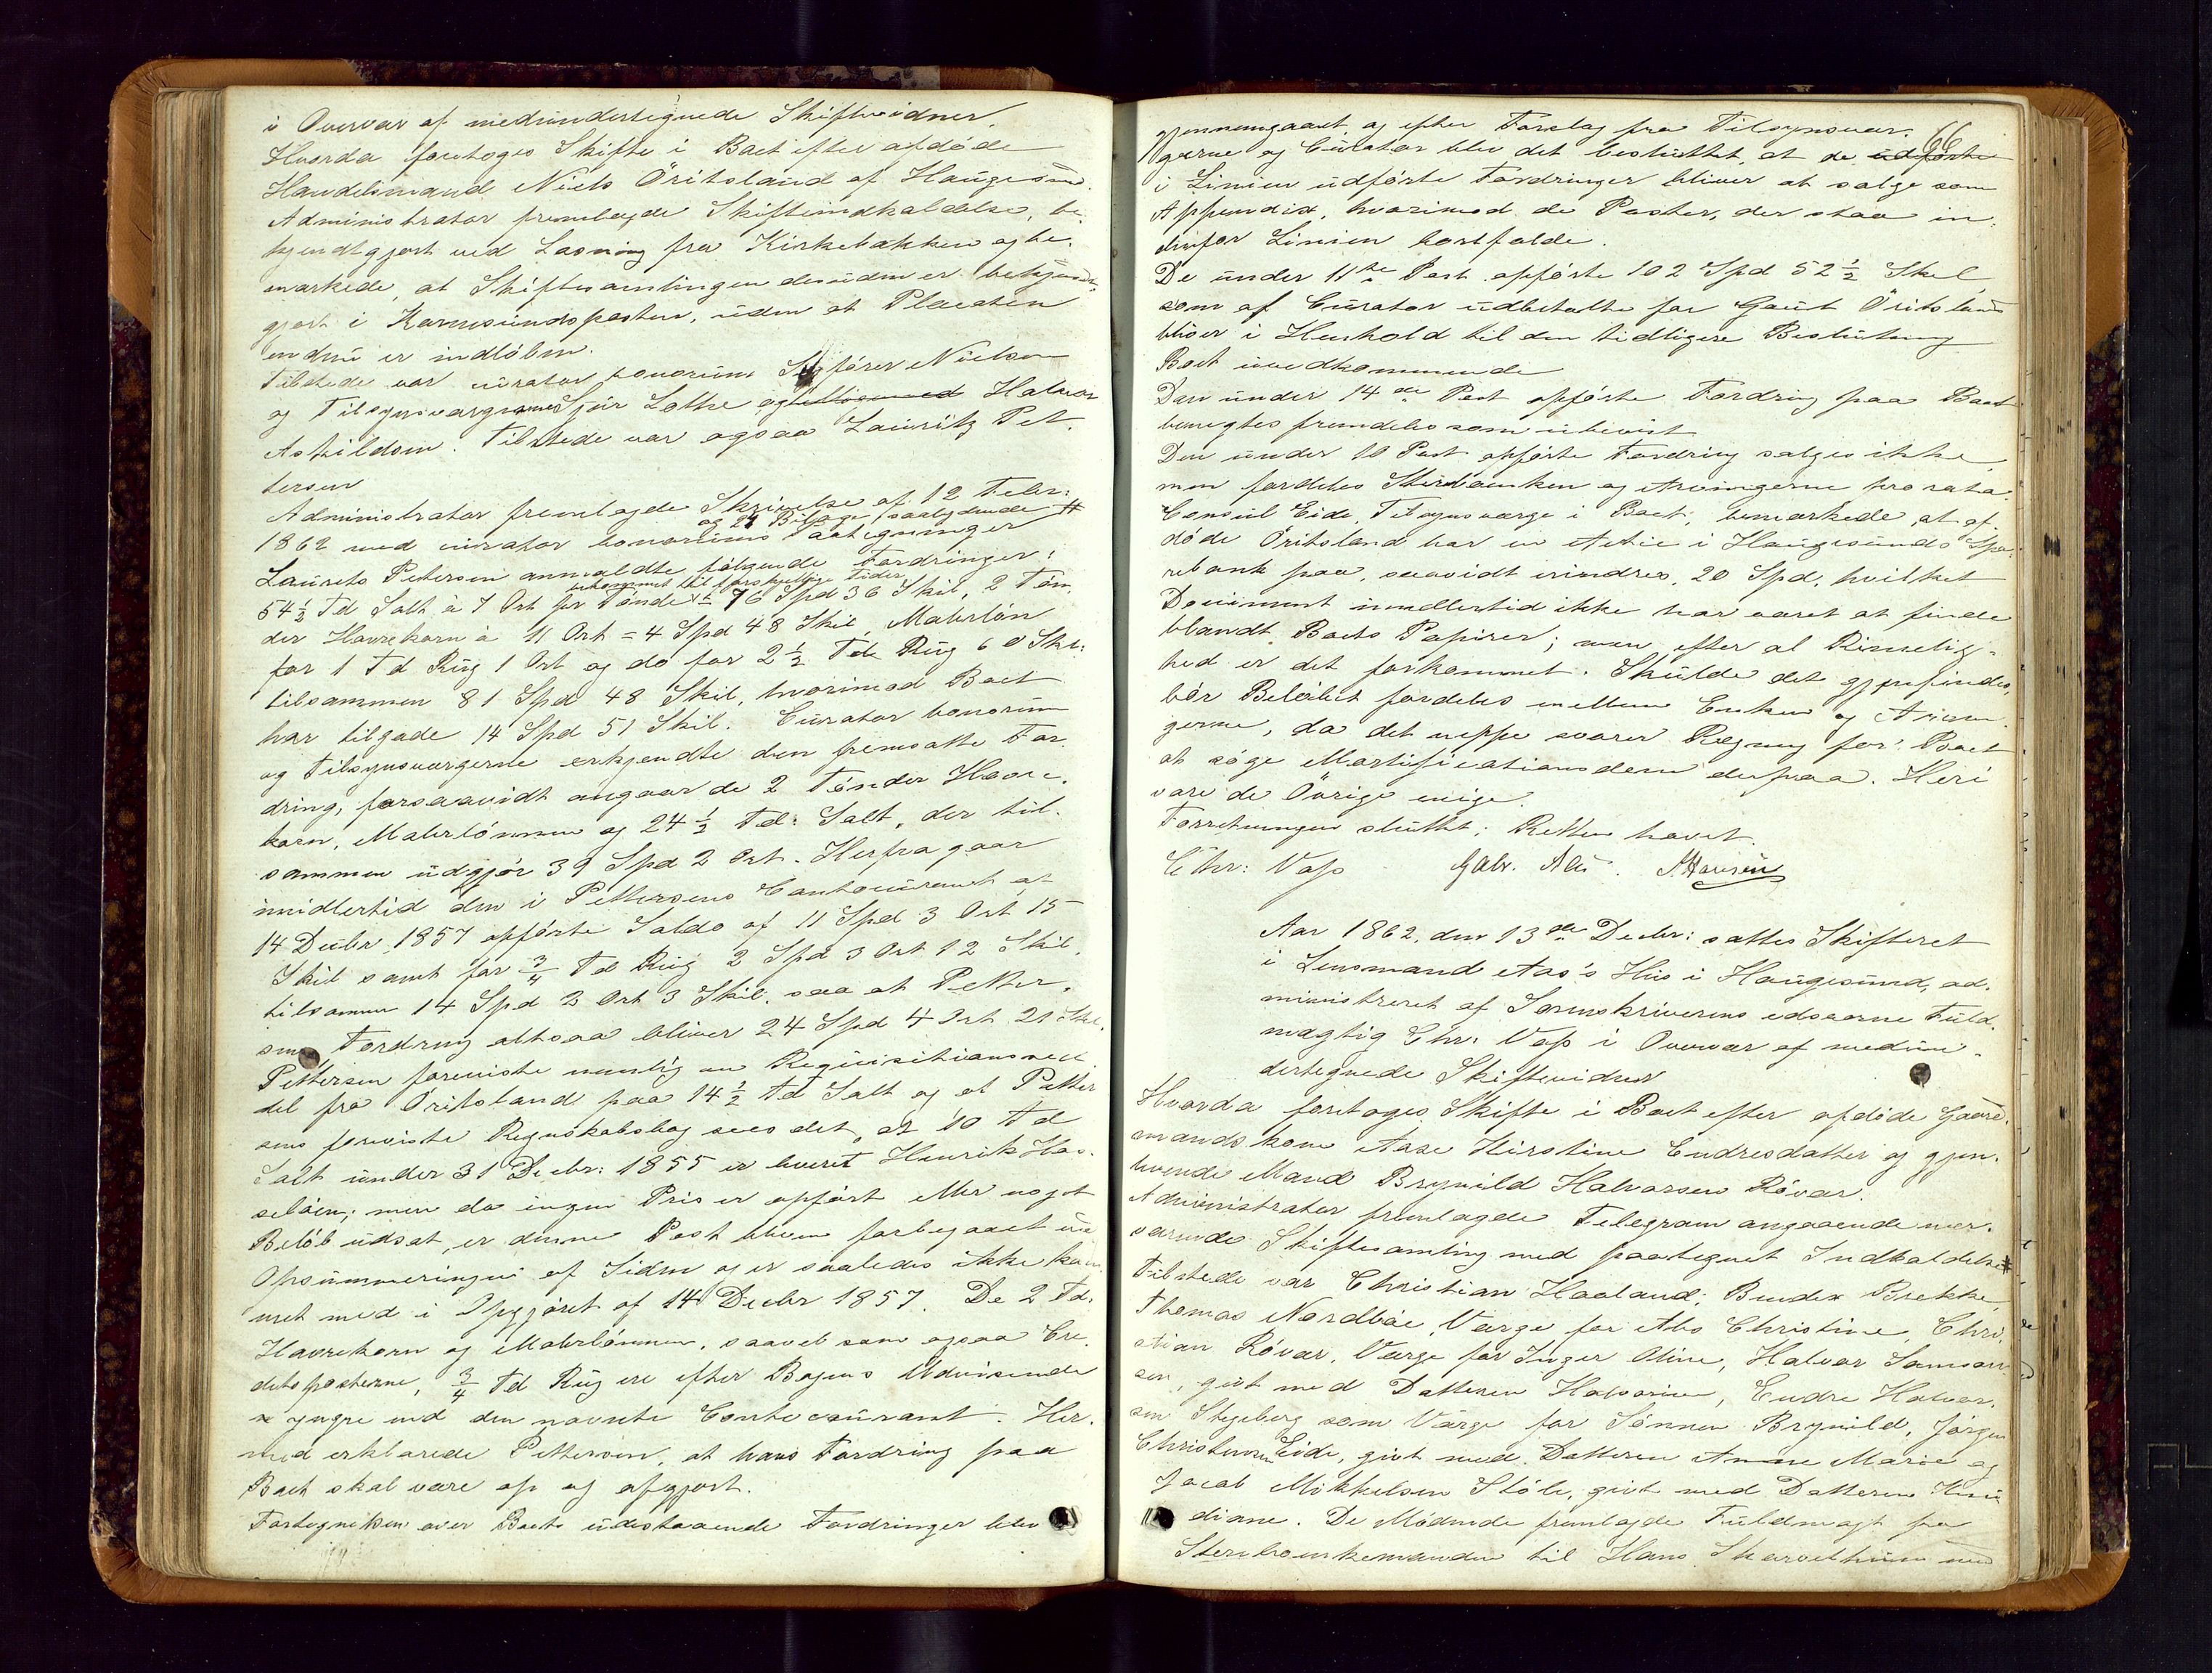 i Overvær af medundertegnede Skiftevidner.
Hvorda foretoges Skifte i Boet efter afdøde
Handelsmand Niels Øritsland af Haugesund.
Administrator fremlagde Skifteindkaldelse, be-
kjendtgjort ved Læsning fra Kirkebakken og be-
mærkede, at Skiftesamlingen desuden er bekjendt-
gjort i Karmsundsposten, uden at Placaten
endnu er indløben.
Tilstede var curator bonorum Sagfører Nielsen
og Tilsynsværgerne Sjur Lothe og Halvor
Askildsen. Tilstede var ogsaa Lauritz Pet-
tersen
Administrator fremlagde Skrivelse af 12 Febr:
og 24 Bilage saalydende #
1862 med curator bonorums Paategninger
Laurits Petersen anmeldte følgende Fordringer:
bekommet til forskjellige Tider
54½ Td Salt à 7 Ort pr Tønde = 76 Spd 36 Skil, 2 Tøn-
der Havrekorn à 11 Ort = 4 Spd 48 Skil, Malerløn
for 1 Td Rug 1 Ort og do for 2½ Td Rug 60 Skil:
tilsammen 81 Spd 48 Skil, hvorimod Boet
har tilgode 14 Spd 51 Skil. Curator bonorum
og Tilsynsværgerne erkjendte den fremsatte For-
dring, forsaavidt angaar de 2 Tønder Havre-
korn, Malerlønnen og 24½ Td: Salt, der til-
sammen udgjør 39 Spd 2 Ort. Herfra gaar
imidlertid den i Pettersens Contocurant af
14 Decbr 1857 opførte Saldo af 11 Spd 3 Ort 15
Skil samt for ¾ Td Rug 2 Spd 3 Ort 12 Skil,
tilsammen 14 Spd 2 Ort 3 Skil. saa at Petter-
sens Fordring altsaa bliver 24 Spd 4 Ort 21 Skil.
Pettersen foreviste nemlig en Requisitionsved
del fra Øritsland paa 14½ Td Salt og af Petter
sens foreviste Regnskabsbog sees det, at 10 Td
Salt under 31 Decbr: 1855 er leveret Henrik Has-
seløen; men da ingen Pris er opført eller noget
Beløb udsat, er denne Post bleven forbigaaet ved
Opsummeringen af Siden og er saaledes ikke kom-
met med i Opgjøret af 14 Decbr 1857. De 2 Td:
Havrekorn og Malerlønnen, saavel som ogsaa Cre-
ditsposterne, ¾ Td Rug ere efter Bogens Udvisende
yngre end den nævnte Contocourant. Her-
med erklærede Pettersen, at hans Fordring paa
Boet skal være op og afgjort.
Fortegnelsen over Boets udestaaende Fordringer blev
66
gjennemgaaet, og efter Forslag fra Tilsynsvær-
gerne og Curator blev det besluttet, at de udførte
i Linien udførte Fordringer bliver at sælge som
Appendix, hvorimod de Poster, der staa in-
denfor Linien bortfalde.
De under 11te Post opførte 102 Spd 52½ Skil,
som af Curator udbetalte for Gaut Øritsland
bliver i Henhold til den tidligere Beslutning
Boet uvedkommende
Den under 14de Post opførte Fordring paa Boet
benegtes fremdeles som ubevist
Den under 10 Post opførte Fordring sælges ikke,
men fordeles Stervboenken og Arvingerne pro rata.
Consul Eide, Tilsynsværge i Boet, bemærkede, at af-
døde Øritsland har en Actie i Haugesunds Spa-
rebank paa, saavidt erindres, 20 Spd, hvilket
Document imidlertid ikke har været at finde
blandt Boets Papirer; men efter al Rimelig-
hed er det forkommet. Skulde det gjenfindes,
bør Beløbet fordeles mellem Enken og Arvin-
gerne, da det neppe svarer Regning for Boet
at søge Mortificationsdom derpaa. Heri
vare de Øvrige enige.
Forretningen sluttet; Retten hævet.
Chr: Vass
Aar 1862, den 13de Decbr: sattes Skifteret
i Lensmand Aas's Hus i Haugesund, ad-
ministreret af Sorenskriverens edsvorne Fuld-
mægtig Chr: Vass i Overvær af medun-
dertegnede Skiftevidner
Hvorda foretoges Skifte i Boet efter afdøde Gaard-
mandskone Aase Kirstine Endresdatter og gjen-
levende Mand Brynild Halvorsen Røvær.
Administrator fremlagde Telegram angaaende nær-
værende Skiftesamling med paategnet Indkaldelse #
Tilstede var Christian Haaland, Brekke,
Thomas Nordbøe, Værge for Christine, Chri-
stian Røvær, Værge for Inger Oline, Halvor Samson-
sen, givt med Datteren Halvorine, Endre Halvor-
sen Stegeberg som Værge for Sønnen Brynild, Jørgen
Christensen Eide, givt med Datteren Anne Marie og
Jacob Mikkelsen Støle, givt med Datteren
diane. De Mødende fremlagde Fuldmagt fra
Stervboenkemanden til Hans med